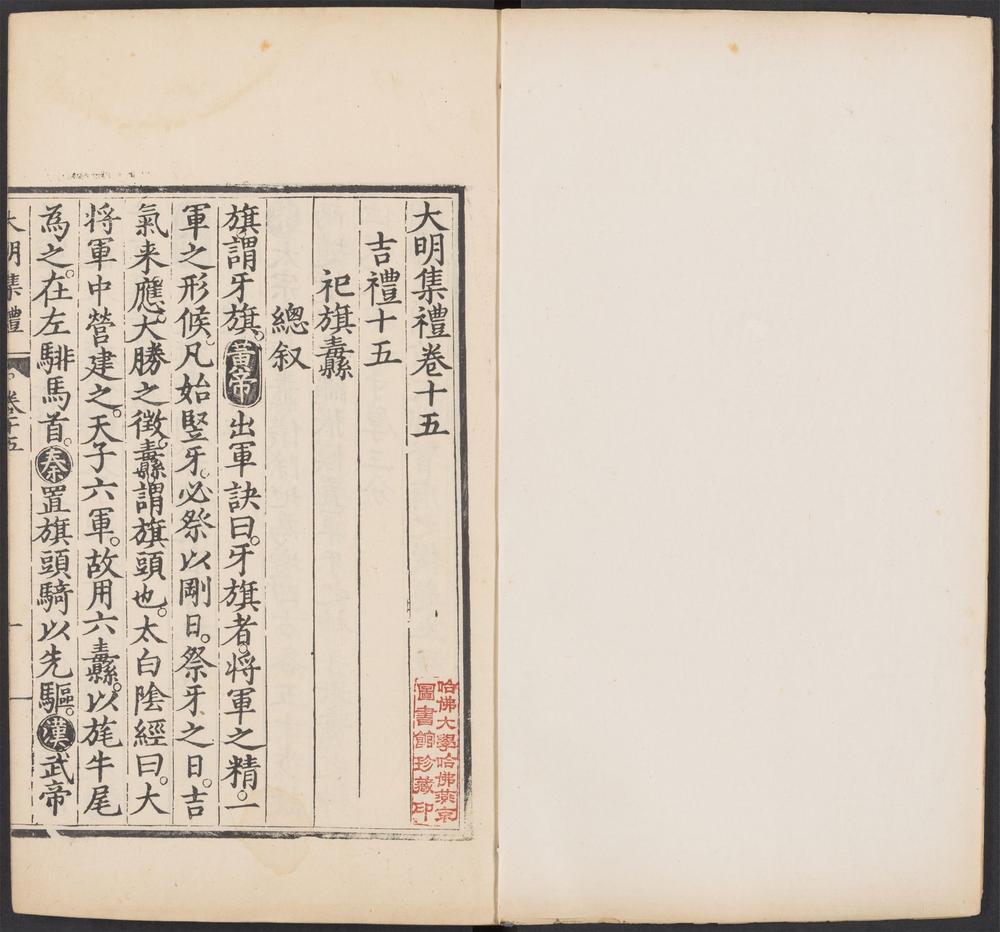 大明集禮卷十五
吉禮十五
祀旗纛
總叙
旗謂牙旗。黃帝出軍訣曰。牙旗者。將軍之精。一
軍之形候。凡始竪牙。必祭以剛日。祭牙之日。吉
氣来應。大勝之徵。纛謂旗頭也。太白陰經曰。大
將軍中營建之。天子六軍。故用六纛。以旄牛尾
為之。在左騑馬首。秦置旗頭騎以先驅。漢武帝
大明集禮 卷十五 一
哈佛大學哈佛燕京
圖書館珍藏印